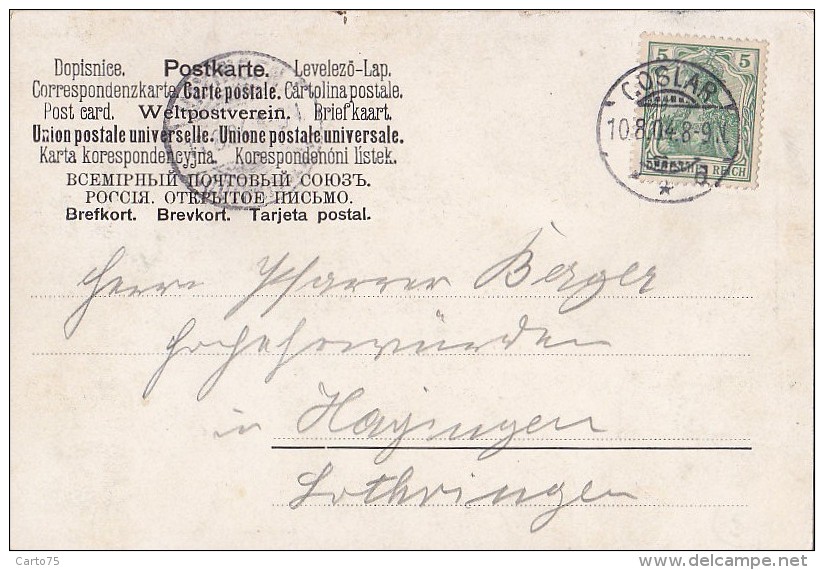 Dopisnice. Postkarte. Levelező-Lap.
Correspondenzkarte. Carte postale. Cartolina postale.
Post card. Weltpostverein. Briefkaart.
Union postale universelle. Unione postale universale.
Karta korespondencyjna. Korespondenóni lístek.
ВСЕМІРНЫЙ ПОЧТОВЫЙ СОЮЗЪ.
РОССІЯ. ОТКРЫТОЕ ПИСЬМО.
Brefkort. Brevkort. Tarjeta postal.
5 5
GOSLAR
10.8.04.8-9.N.
REICH
Herrn Pfarrer Berger
Hochehrwürden
in Hayingen
Lothringen
Carto75
delcampe.net